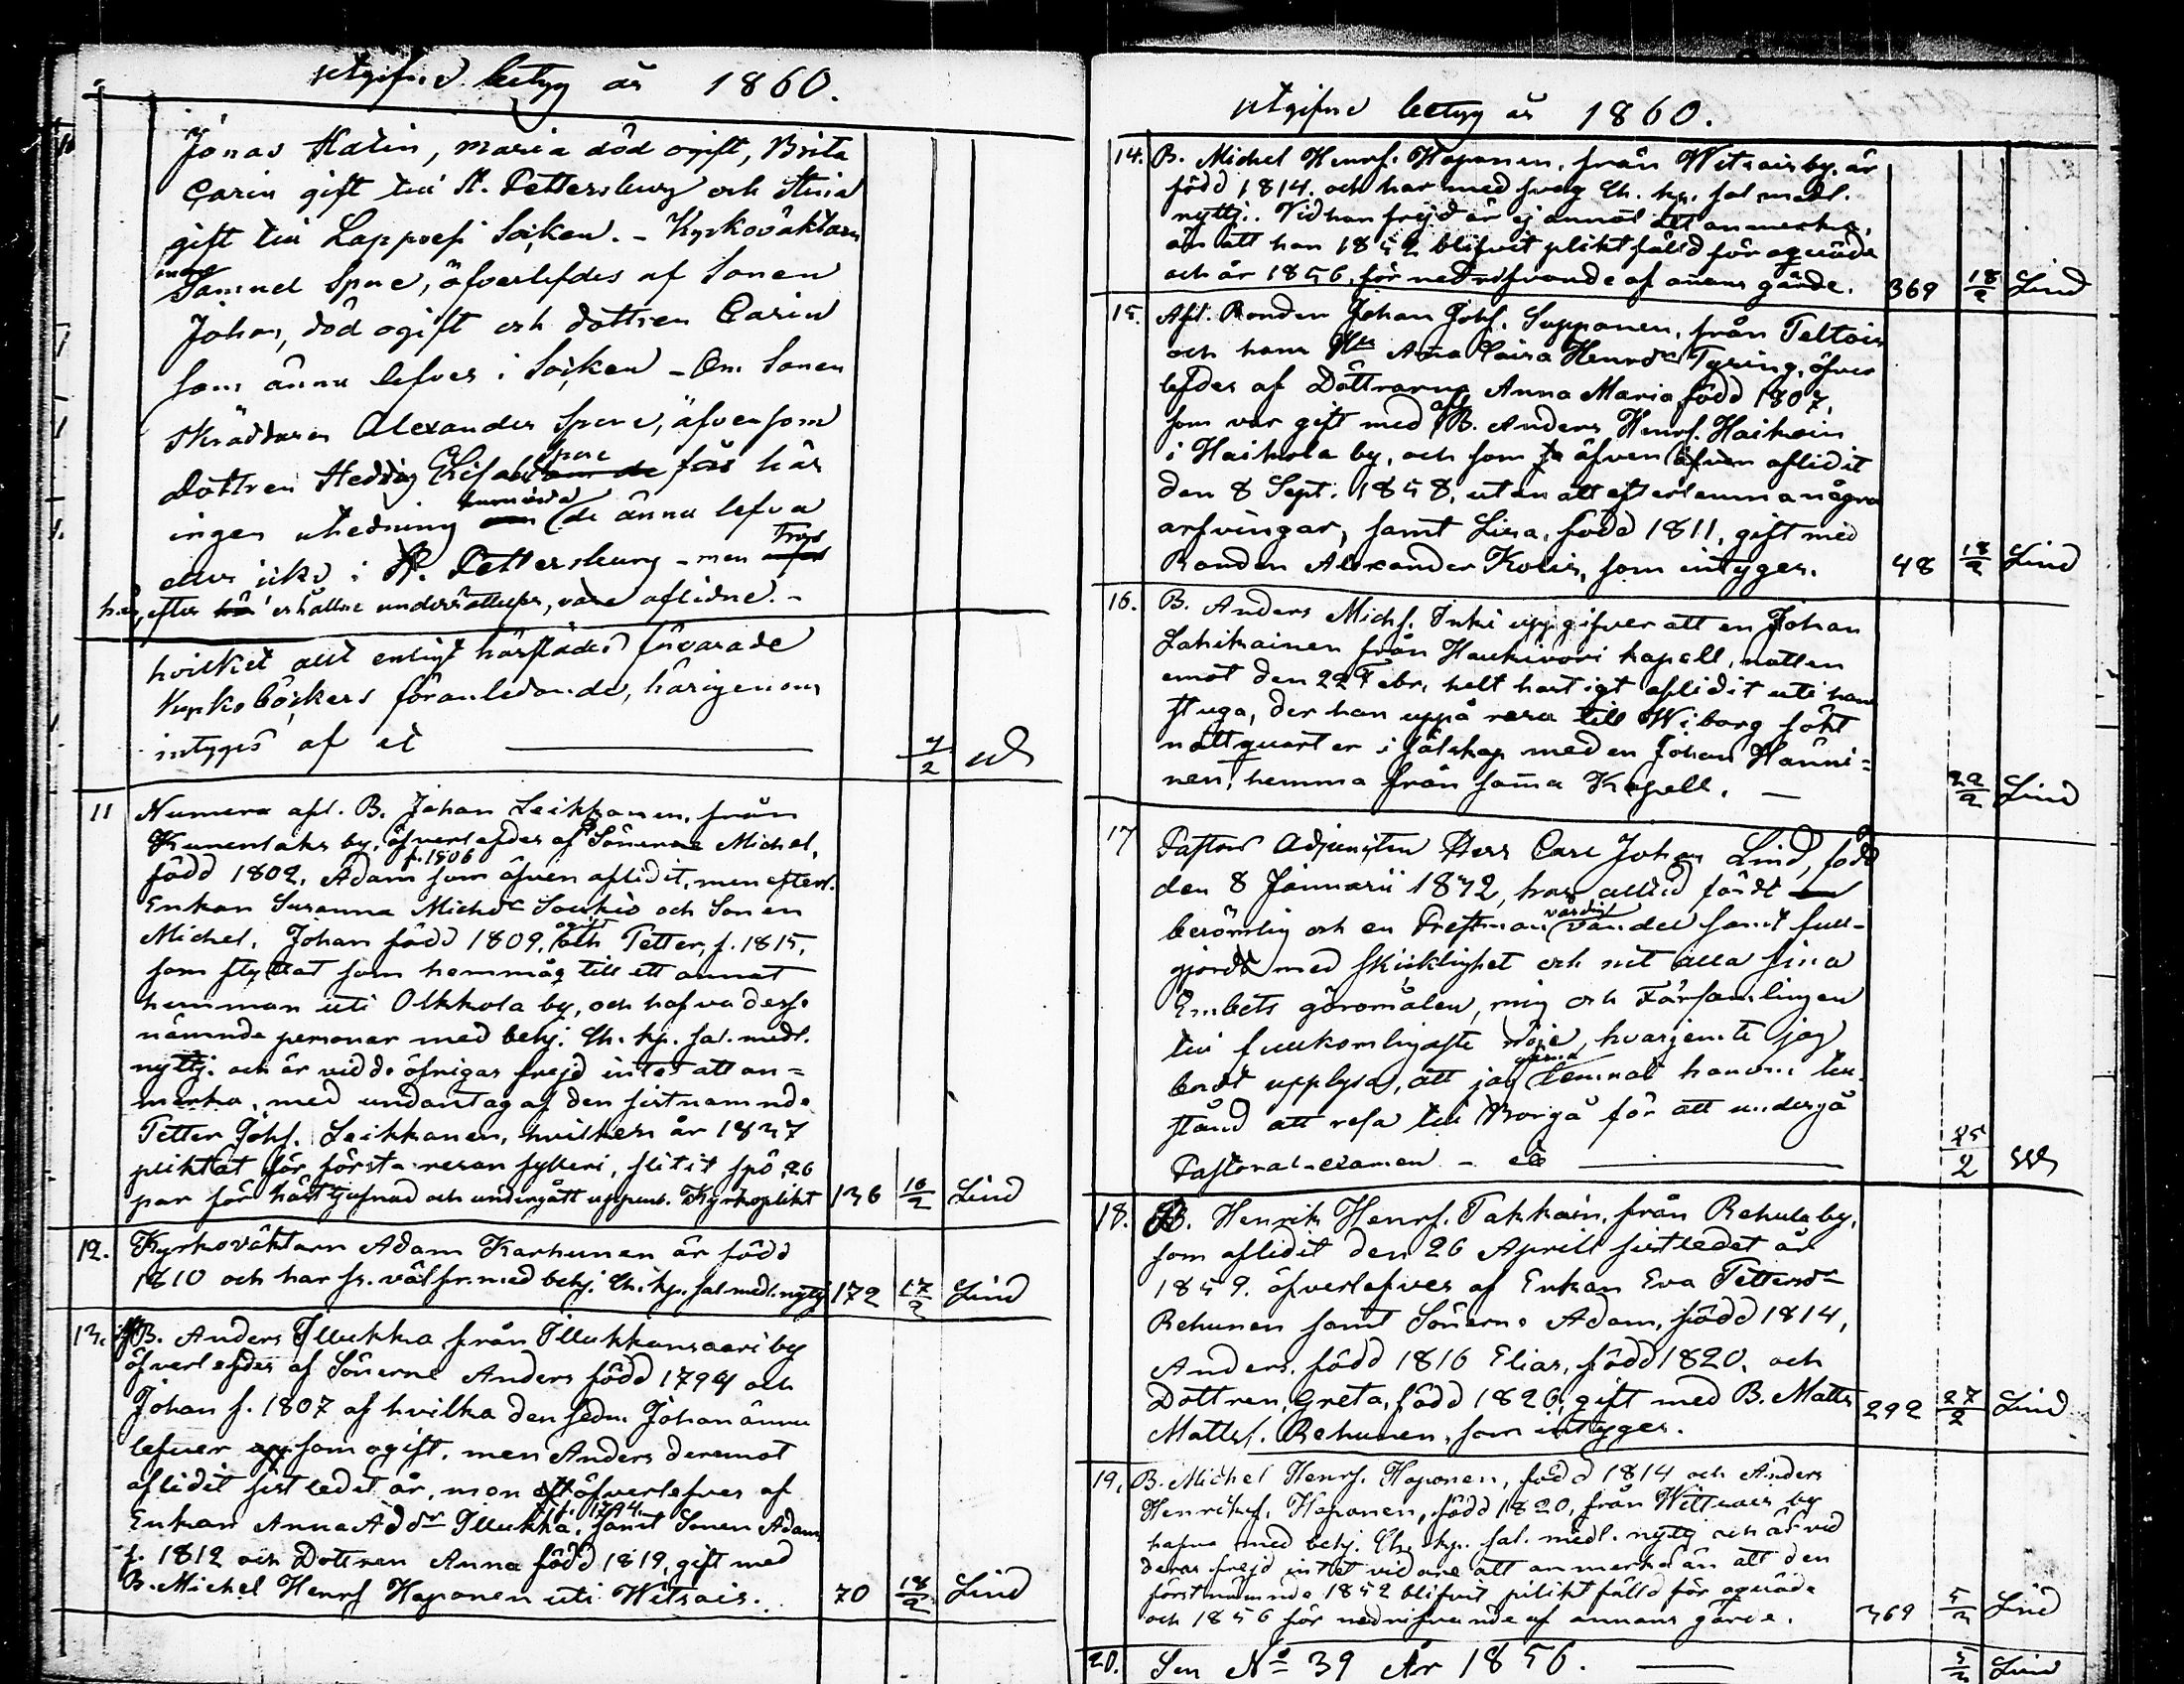 utgifne betyg år 1860.
Jonas Halin, Maria död ogift, Brita
Carin gift till St. Pettersburg och Stina
gift till Lapvesi Socken. - Kyrkoväktaren
Samuel Spore, öfverlefdes af Sonen
Johan, död ogift och dottren Carin
som ännu lefver i Socken - Om Sonen
Skräddaren Alexander Spore, äfvensom
Dottren Hedvig Elisabet Spore fås här
ingen utredning huruvida de ännu lefva
eller icke i St. Pettersburg - men tros
här, efter erhållne underrättelser, vara aflidne. -
hvilket allt enligt härstädes förvarade
Kyrkoböckers föranledande, härigenom
intygas af
7/2
11 Numera afl. B. Johan Leikkanen, från
Kunenlaks by, öfverlefdes af Sönerna Michel,
född 1802, Adam f. 1806 som äfven aflidit, men efterl.
Enkan Susanna Michsdr Soikis och Sonen
Michel, Johan född 1809, ogift och Petter, f. 1815,
som flyttat som hemmåg till ett annat
hemman uti Olkkola by, och hafva desse
nämnde personer med behj. Ch. kp. sal. medl.
nyttj. och är vid de öfrigas frejd intet att an=
merka, med undantag af den sistnämnde
Petter Johs. Leikkanen, hvilken år 1837
pliktat för första resan fylleri, slitit spö 26
par för hästtjufnad och undergått uppenb. Kyrkoplikt 136 16/2 Lind
12. Kyrkoväktarn Adam Karhunen är född
1810 och har fr. väl fr. med behj. Ch. kp. sal. medl. nyttj 172 17/2 Lind
13. B. Anders Illukka från Illukkansaari by
öfverlefdes af Sönerne Anders född 1794 och
Johan f. 1807 af hvilka den sedn. Johan ännu
lefver som ogift, men Anders deremot
aflidit sistledit år, men öfverlefves af
Enkan Anna Addr Illukka, f. 1794, samt Sonen Adam
f. 1812 och Dottren Anna född 1819, gift med
B. Michel Henrs Haponen uti Witsais. 70 18/2 Lind
utgifne betyg år 1860.
14. B. Michel Henrs. Haponen, från Witsais by, är
född 1814, och har med svag Ch. kp. sal. medl.
nyttj. Vid han frejd är ej annat att anmerka,
än att han 1852 blifvit pliktfäld för oqväde
och år 1856, för nedrifvande af anans gärde. 369 18/2 Lind
15. Afl. Bonden Johan Johs. Supponen, från Teltois
och hans Hu Anna Caisa Henrdr Tyring, öfver
lefdes af Döttrarne Anna Maria född 1807,
som var gift med afl B. Anders Henrs. Haikoin
i Haikola by, och som äfven aflidit
den 8 Sept. 1858, utan att efterlemna några
arfvingar, samt Lisa, född 1811, gift med
Bonden Alexander Kolis, som intyges. 48 18/2 Lind
16. B. Anders Michs. Inki uppgifver att en Johan
Lahikainen från Haukivori kapell, natten
emot den 22 Febr. helt hastigt aflidit uti hans
stuga, der han uppå resa till Wiborg sökt
nattqvarter i sälskap med en Johan Hänni=
nen, hemma från sama Kapell. - 22/2 Lind
17 Pastors Adjuncten Herr Carl Johan Lind, född
den 8 Januarii 1832, har alltid fördt
berömlig och en Prestman värdig vandel samt full-
gjordt med skicklighet och nit alla sina
Embets göromålen, mig och Församlingen
till fullkomligaste nöje, hvarjemte jag
bordt upplysa, att jag gerna lemnat honom till-
stånd att resa till Borgå för att undergå
Pastoral-examen - 25/2
18. B. Henrik Henrs. Takkain, från Rehula by,
som aflidit den 26 Aprill sistledet år
1859. öfverlefves af Enkan Eva Pettersdr
Rehunen samt Sönerne Adam, född 1814,
Anders, född 1816 Elias, född 1820, och
Dottren, Greta, född 1826, gift med B. Matts
Mattss. Rehunen, som intyges. 292 27/2 Lind
19. B. Michel Henrs. Haponen, född 1814 och Anders
Henrikss. Haponen, född 1820, från Wittsais by
hafva med behj. Ch. kp. sal. medl. nyttj och är vid
deras frejd intet vidare att anmerka än att den
förstnämnde 1852 blifvit pliktfälld för oqväde
och 1856 för nedrifvande af annans gärde. 369 5/3 Lind
20. Sen No 39 År 1856. 5/3 Lind